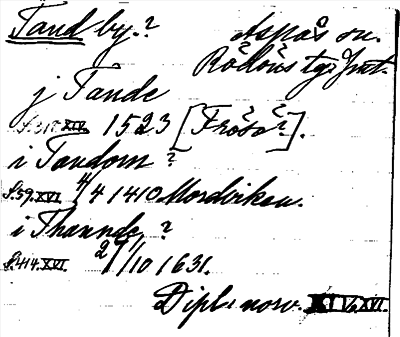 Tand by.? Aspås sn.
Rödöns tg. Jmt.
j Tande
S. 310 XIV. 1523 [Frösö?].
i Tandom ?
S. 59. XVI. 4/4 1410 Mordviken.
i Thannde ?
S. 414. XVI. 2/10 1631.
Dipl. norv. XIV, XVI.